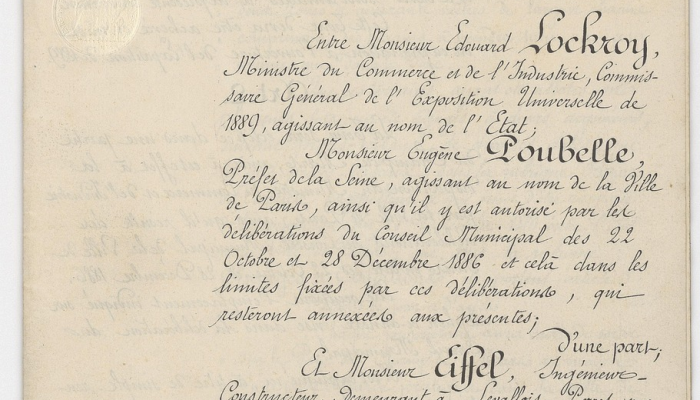 Entre Monsieur Edouard Lockroy,
Ministre du Commerce et de l'Industrie, Commis-
saire Général de l'Exposition Universelle de
1889, agissant au nom de l'Etat;
Monsieur Eugène Poubelle,
Préfet de la Seine, agissant au nom de la Ville
de Paris, ainsi qu'il y est autorisé par les
délibérations du Conseil Municipal des 22
Octobre et 28 Décembre 1886 et celà dans les
limites fixées par ces délibérations, qui
resteront annexées aux présentes;
d'une part;
Et Monsieur Eiffel, Ingénieur-
Constructeur, demeurant à Levallois Perret